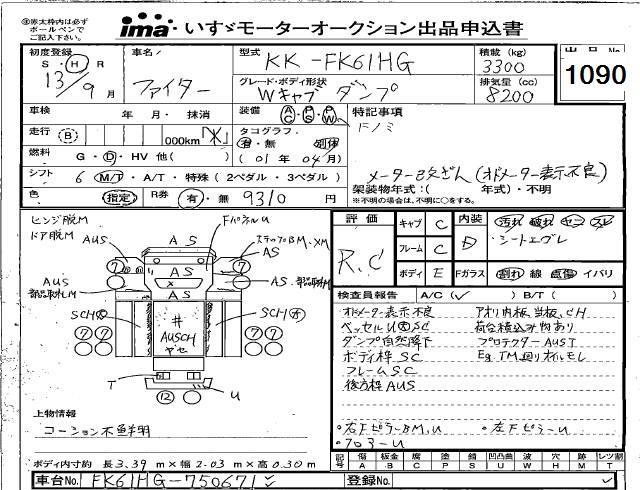 ※赤太枠内は必ず
ボールペンで
ご記入下さい。
ima いすゞモーターオークション出品申込書
初度登録
S・H・R
13/9月
車名
ファイター
型式
KK-FK61HG
積載 (kg)
3300
出品No
1090
グレード・ボディ形状
Wキャブ ダンプ
排気量 (cc)
8200
車検
年 月・ 抹消
装備
AC・PS・PW
特記事項
走行 (B)
000km
タコグラフ
有・無
(01年04月)
メーター改ざん(オドメーター表示不良)
燃料
G・D・HV 他( )
シフト
6 M/T・A/T・特殊(2ペダル・3ペダル)
架装物年式:( 年式)・不明
※不明の場合は、不明に○をする。
色
指定
R券
有・無 9310 円
ヒンジ脱M
ドア脱M
AUS
AS
FパネルU
ステップBM、XM
AS
評価
R.C
キャブ C
フレーム C
ボディ E
内装 D
汚れ 破れ ヤニ スレ
シートエグレ
Fガラス
割れ 線 点傷 イバリ
AUS
部品取外しM
AS
AS
AS、部品取外しM
SCH
SCH
井
AUSCH
ヤセ
T
U
7 7 7 7 7 7
12
検査員報告 A/C( ✓ ) B/T( )
オドメーター表示不良
アオリ内板、当板、CH
ベッセルU SC
荷台積込み物有り
ダンプ自然降下
プロテクターAUST
ボディ枠SC
Eg.TM廻りオイルモレ
フレームSC
後方枠AUS
・右FピラーBM、U
・左FピラーU
・フロアーU
上物情報
コーション不鮮明
ボディ内寸約 長3.39m×幅2.03m×高0.30m
記号
傷 A
板金 B
腐 C
塗 P
錆 S
凹凸曲 U
波 W
穴 H
跡 M
レンズ割 T
車台No. FK61HG-750671
登録No.